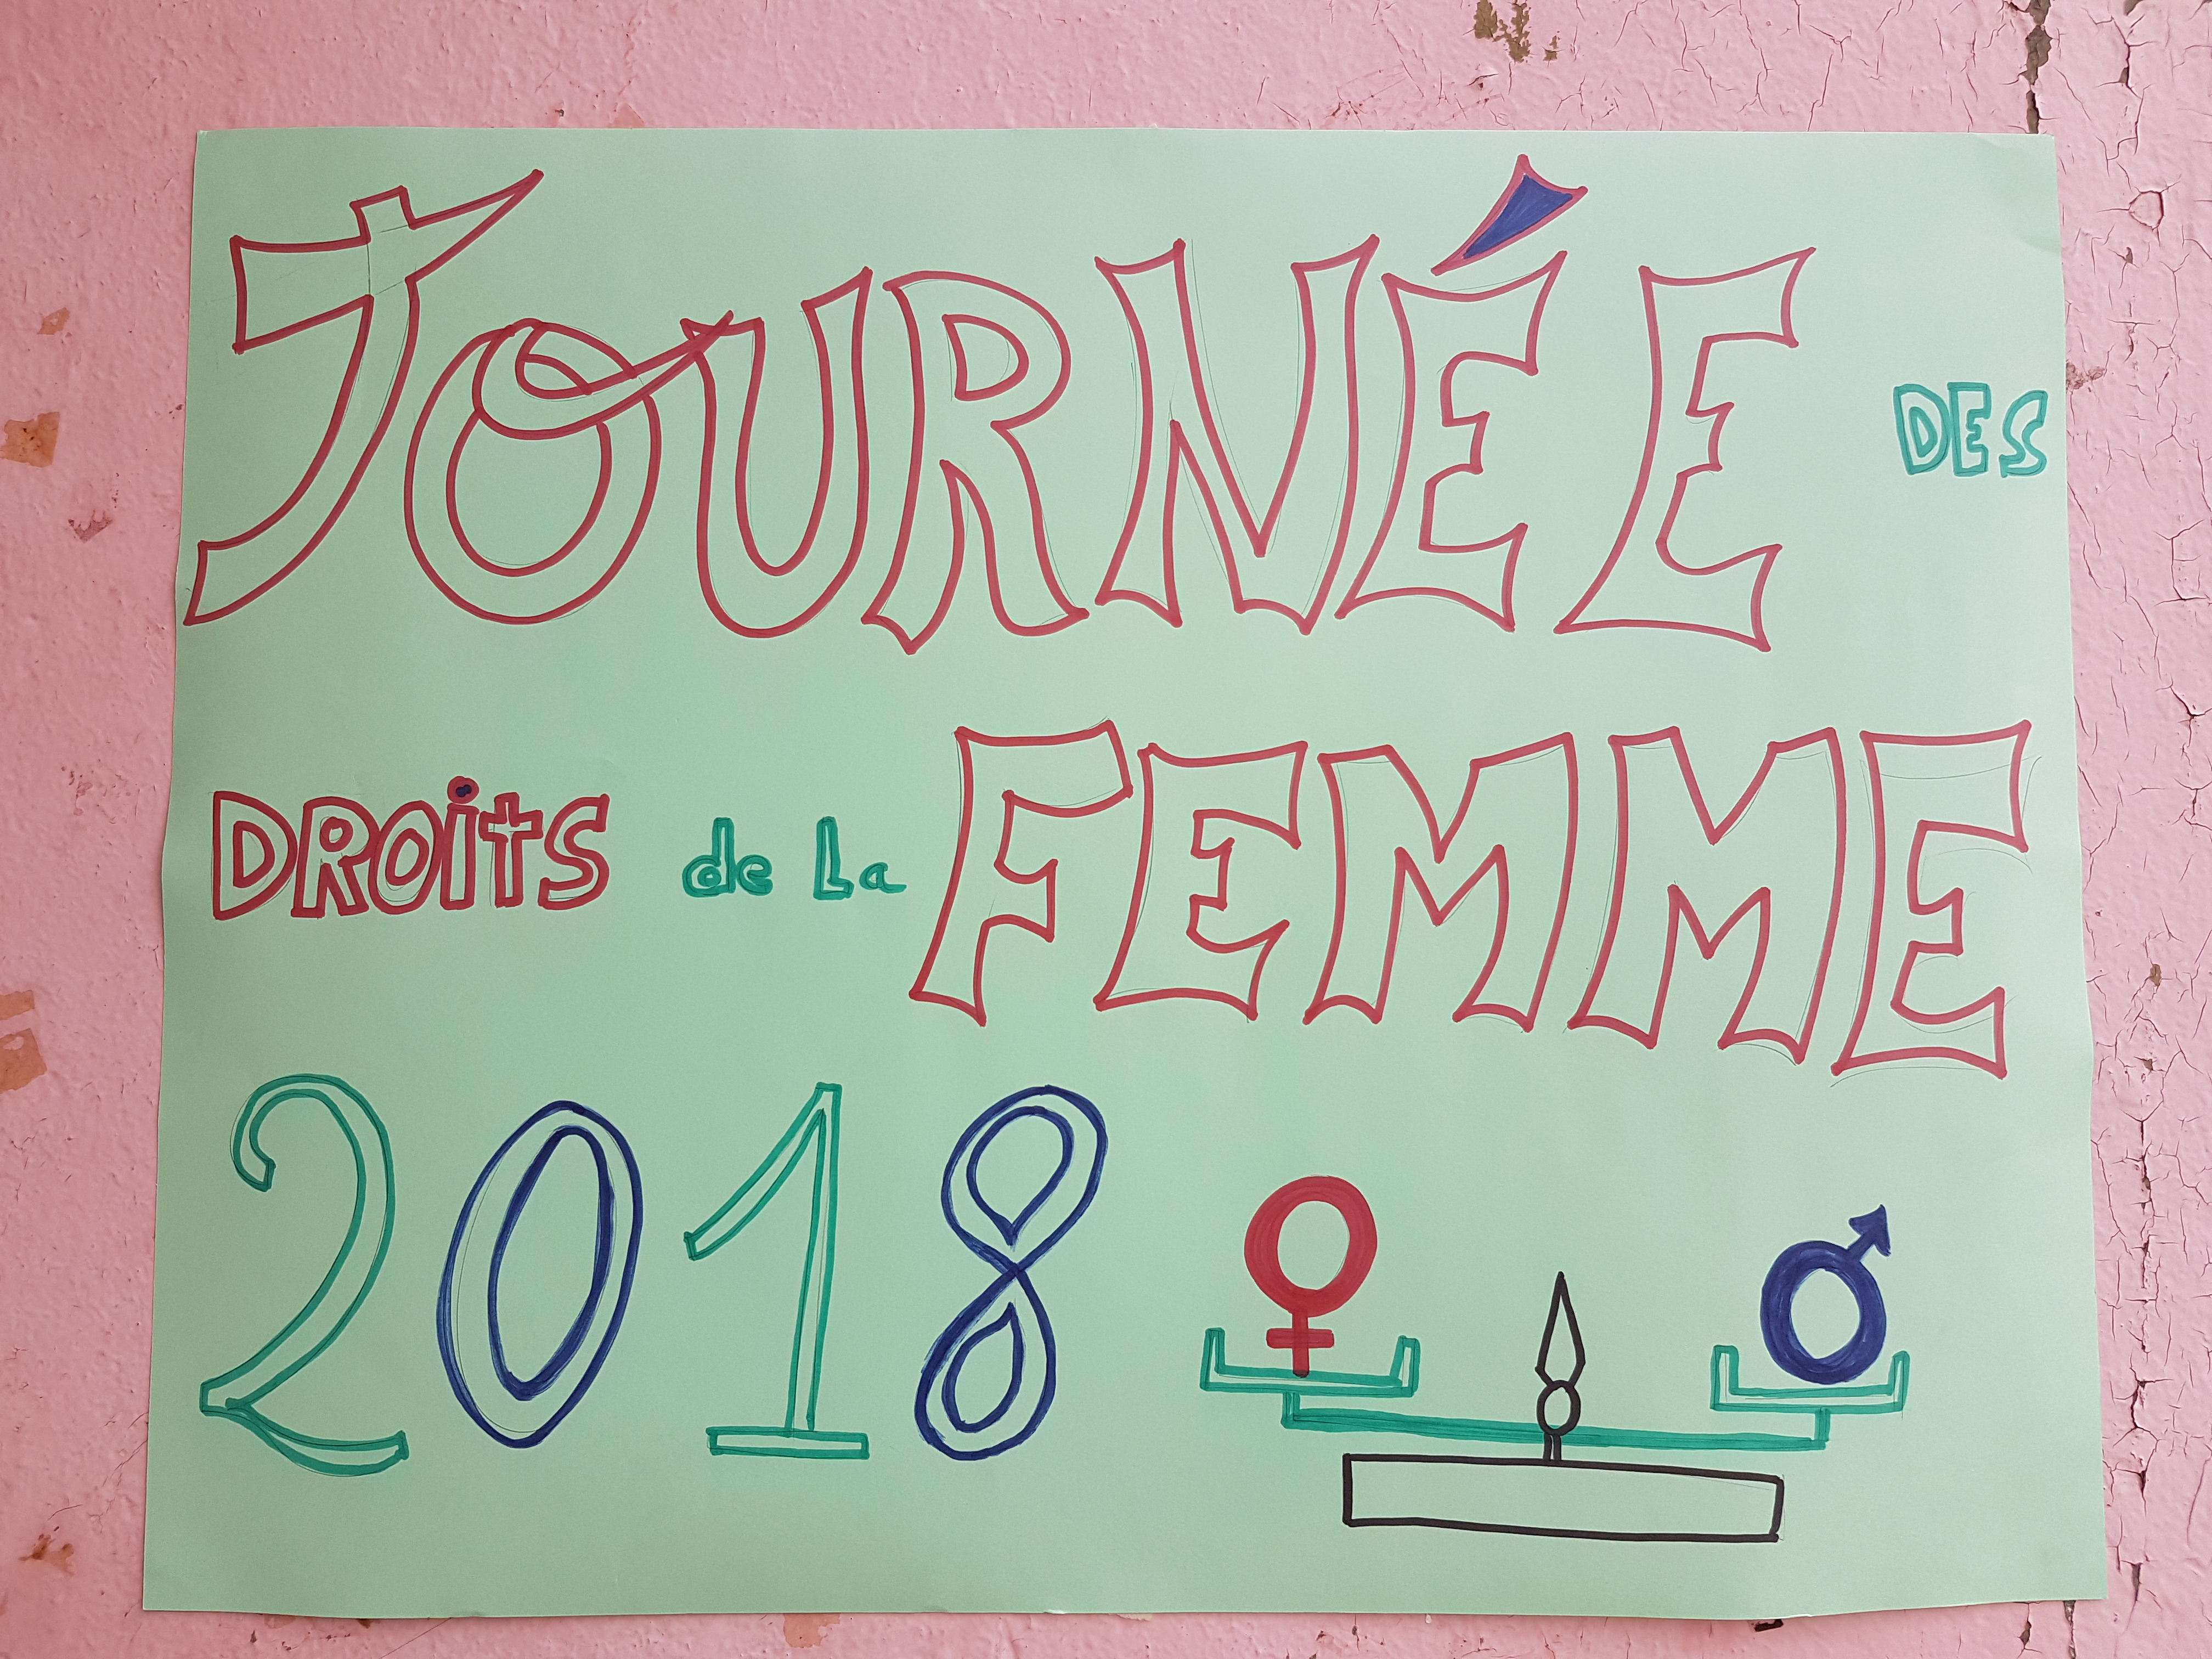 JOURNÉE DES
DROiTS de La FEMME
2018